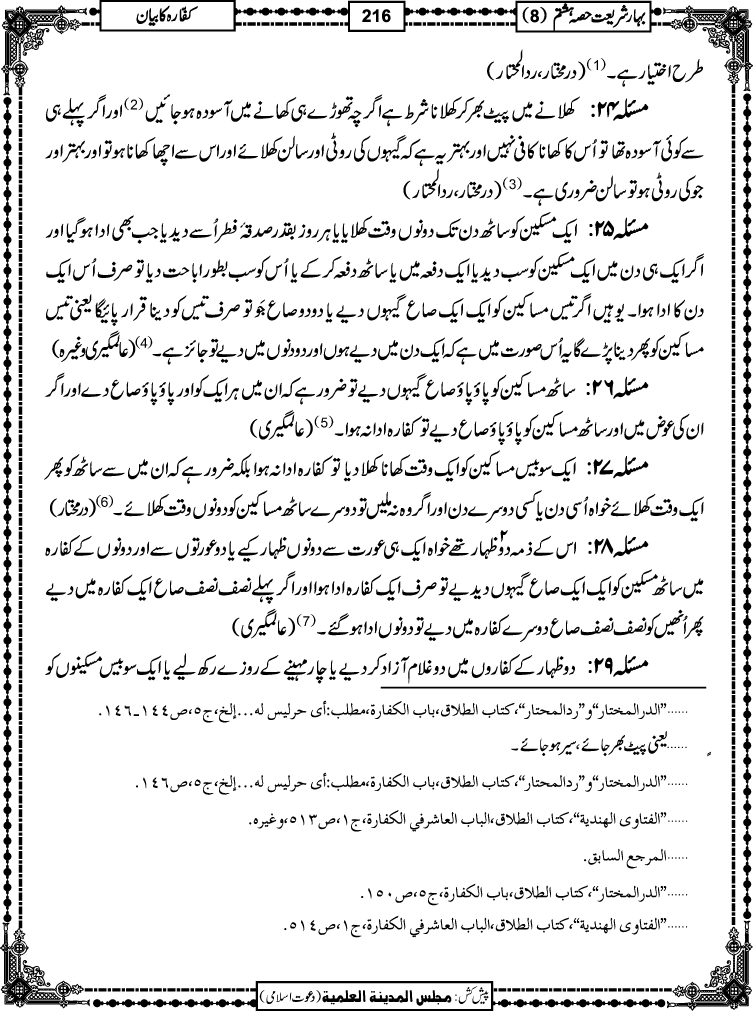 بہار شریعت حصہ ہشتم (8)
216
کفارہ کا بیان
طرح اختیار ہے۔(1) (درمختار، ردالمحتار)
مسئلہ ۲۴: کھلانے میں پیٹ بھر کر کھلانا شرط ہے اگرچہ تھوڑے ہی کھانے میں آسودہ ہو جائیں(2) اور اگر پہلے ہی
سے کوئی آسودہ تھا تو اُس کا کھانا کافی نہیں اور بہتر یہ ہے کہ گیہوں کی روٹی اور سالن کھلائے اور اس سے اچھا کھانا ہو تو اور بہتر اور
جو کی روٹی ہو تو سالن ضروری ہے۔(3) (درمختار، ردالمحتار)
مسئلہ ۲۵: ایک مسکین کو ساٹھ دن تک دونوں وقت کھلایا یا ہر روز بقدر صدقۂ فطر اُسے دیدیا جب بھی ادا ہو گیا اور
اگر ایک ہی دن میں ایک مسکین کو سب دیدیا ایک دفعہ میں یا ساٹھ دفعہ کر کے یا اُس کو سب بطور اباحت دیا تو صرف اُس ایک
دن کا ادا ہوا۔ یوہیں اگر تیس مساکین کو ایک ایک صاع گیہوں دیے یا دو دو صاع جَو تو صرف تیس کو دینا قرار پائیگا یعنی تیس
مساکین کو پھر دینا پڑے گا یہ اُس صورت میں ہے کہ ایک دن میں دیے ہوں اور دو دنوں میں دیے تو جائز ہے۔(4) (عالمگیری وغیرہ)
مسئلہ ۲۶: ساٹھ مساکین کو پاؤ پاؤ صاع گیہوں دیے تو ضرور ہے کہ ان میں ہر ایک کو اور پاؤ پاؤ صاع دے اور اگر
ان کی عوض میں اور ساٹھ مساکین کو پاؤ پاؤ صاع دیے تو کفارہ ادا نہ ہوا۔(5) (عالمگیری)
مسئلہ ۲۷: ایک سو بیس مساکین کو ایک وقت کھانا کھلا دیا تو کفارہ ادا نہ ہوا بلکہ ضرور ہے کہ ان میں سے ساٹھ کو پھر
ایک وقت کھلائے خواہ اُسی دن یا کسی دوسرے دن اور اگر وہ نہ ملیں تو دوسرے ساٹھ مساکین کو دونوں وقت کھلائے۔(6) (درمختار)
مسئلہ ۲۸: اس کے ذمہ دو۲ ظہار تھے خواہ ایک ہی عورت سے دونوں ظہار کیے یا دو عورتوں سے اور دونوں کے کفارہ
میں ساٹھ مسکین کو ایک ایک صاع گیہوں دیدیے تو صرف ایک کفارہ ادا ہوا اور اگر پہلے نصف نصف صاع ایک کفارہ میں دیے
پھر اُنھیں کو نصف نصف صاع دوسرے کفارہ میں دیے تو دونوں ادا ہو گئے۔(7) (عالمگیری)
مسئلہ ۲۹: دو ظہار کے کفاروں میں دو غلام آزاد کر دیے یا چار مہینے کے روزے رکھ لیے یا ایک سو بیس مسکینوں کو
......"الدرالمختار" و "ردالمحتار"، کتاب الطلاق، باب الکفارة، مطلب: أی حرلیس له...إلخ، ج٥، ص١٤٤-١٤٦.
......یعنی پیٹ بھر جائے، سیر ہو جائے۔
......"الدرالمختار" و "ردالمحتار"، کتاب الطلاق، باب الکفارة، مطلب: أی حرلیس له...إلخ، ج٥، ص١٤٦.
......"الفتاوی الهندیة"، کتاب الطلاق، الباب العاشرفي الکفارة، ج١، ص٥١٣، وغیرہ.
......المرجع السابق.
......"الدرالمختار"، کتاب الطلاق، باب الکفارة، ج٥، ص١٥٠.
......"الفتاوی الهندیة"، کتاب الطلاق، الباب العاشرفي الکفارة، ج١، ص٥١٤.
پیش کش: مجلس المدینة العلمیة (دعوت اسلامی)